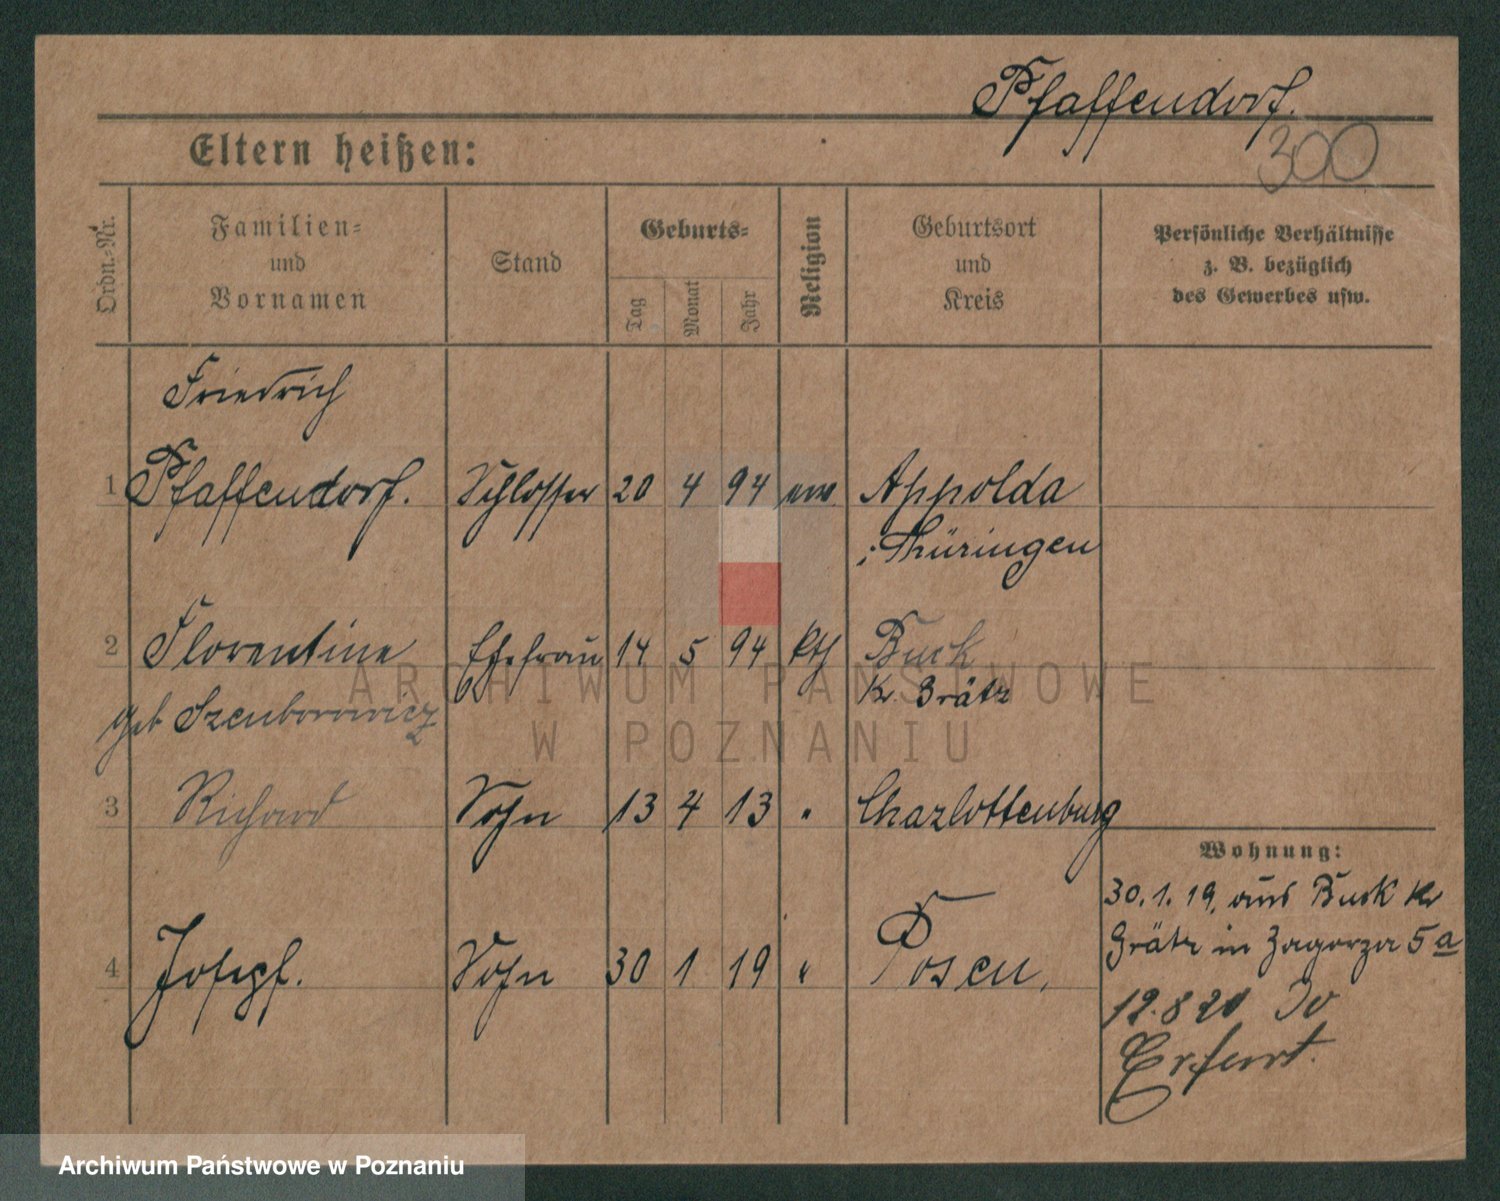 Pfaffendorf.
300
Eltern heißen:
Ordn.-Nr.
Familien-
und
Vornamen
Stand
Geburts-
Tag
Monat
Jahr
Religion
Geburtsort
und
Kreis
Persönliche Verhältnisse
z. B. bezüglich
des Gewerbes usw.
Friedrich
1 Pfaffendorf. Schlosser 20 4 94 ew Appolda
i Thüringen
2 Florentine Ehefrau 14 5 94 kth Buck
geb Szenborowicz Kr. Grätz
3 Richard Sohn 13 4 13 " Charlottenburg
Wohnung:
30.1.19. aus Buck Kr
Grätz in Zagorza 5a
4 Josepf. Sohn 30 1 19 " Posen.
12.8 20
Erfurt.
ARCHIWUM PAŃSTWOWE
W POZNANIU
Archiwum Państwowe w Poznaniu